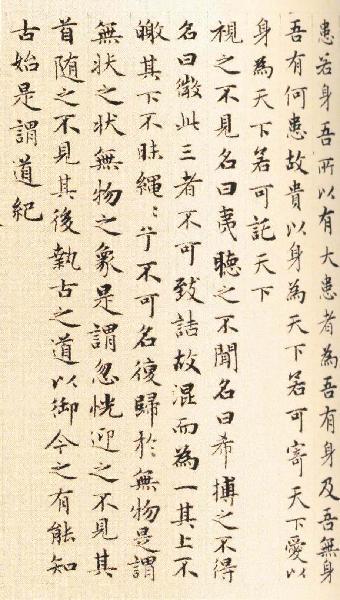 患若身吾所以有大患者為吾有身及吾無身
吾有何患故貴以身為天下若可寄天下愛以
身為天下若可託天下
視之不見名曰夷聽之不聞名曰希搏之不得
名曰微此三者不可致詰故混而為一其上不
皦其下不昧繩〻兮不可名復歸於無物是謂
無状之状無物之象是謂忽恍迎之不見其
首随之不見其後執古之道以御今之有能知
古始是謂道紀